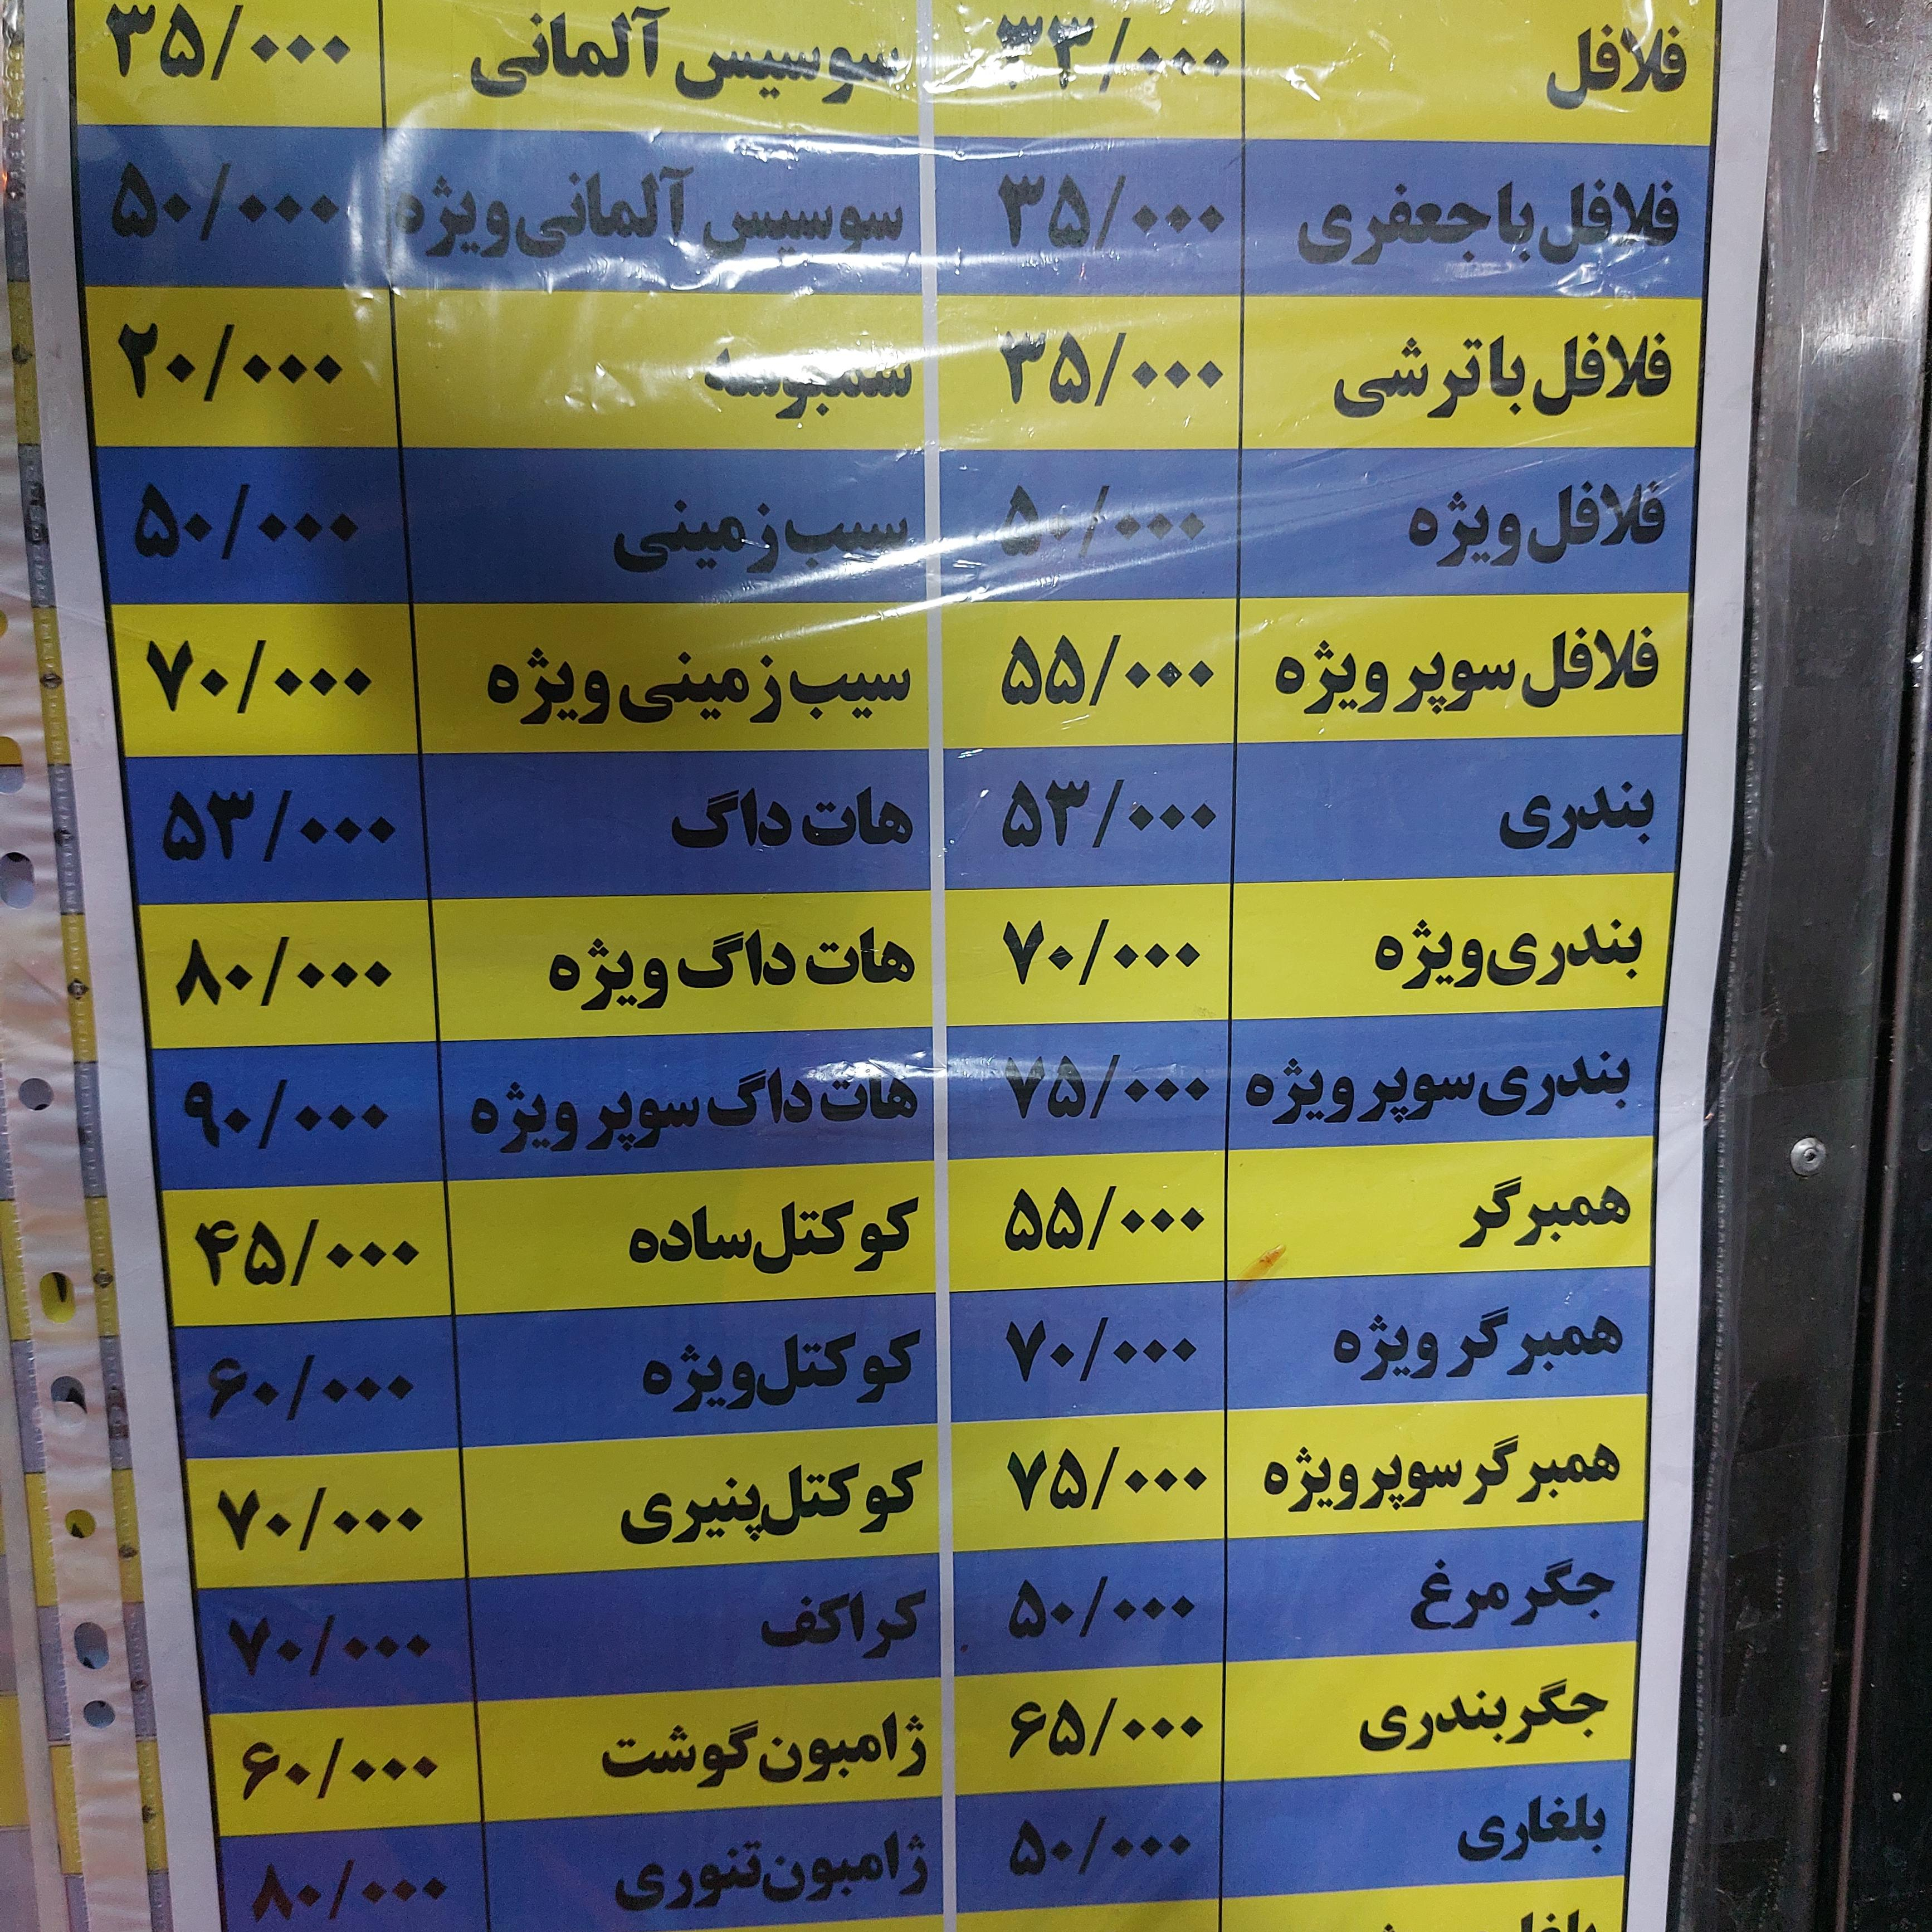 فلافل ۳۳/۰۰۰ سوسیس آلمانی ۳۵/۰۰۰
فلافل با جعفری ۳۵/۰۰۰ سوسیس آلمانی ویژه ۵۰/۰۰۰
فلافل با ترشی ۳۵/۰۰۰ سمبوسه ۲۰/۰۰۰
فلافل ویژه ۵۰/۰۰۰ سیب زمینی ۵۰/۰۰۰
فلافل سوپر ویژه ۵۵/۰۰۰ سیب زمینی ویژه ۷۰/۰۰۰
بندری ۵۳/۰۰۰ هات داگ ۵۳/۰۰۰
بندری ویژه ۷۰/۰۰۰ هات داگ ویژه ۸۰/۰۰۰
بندری سوپر ویژه ۷۵/۰۰۰ هات داگ سوپر ویژه ۹۰/۰۰۰
همبرگر ۵۵/۰۰۰ کوکتل ساده ۴۵/۰۰۰
همبرگر ویژه ۷۰/۰۰۰ کوکتل ویژه ۶۰/۰۰۰
همبرگر سوپر ویژه ۷۵/۰۰۰ کوکتل پنیری ۷۰/۰۰۰
جگر مرغ ۵۰/۰۰۰ کراکف ۷۰/۰۰۰
جگر بندری ۶۵/۰۰۰ ژامبون گوشت ۶۰/۰۰۰
بلغاری ۵۰/۰۰۰ ژامبون تنوری ۸۰/۰۰۰